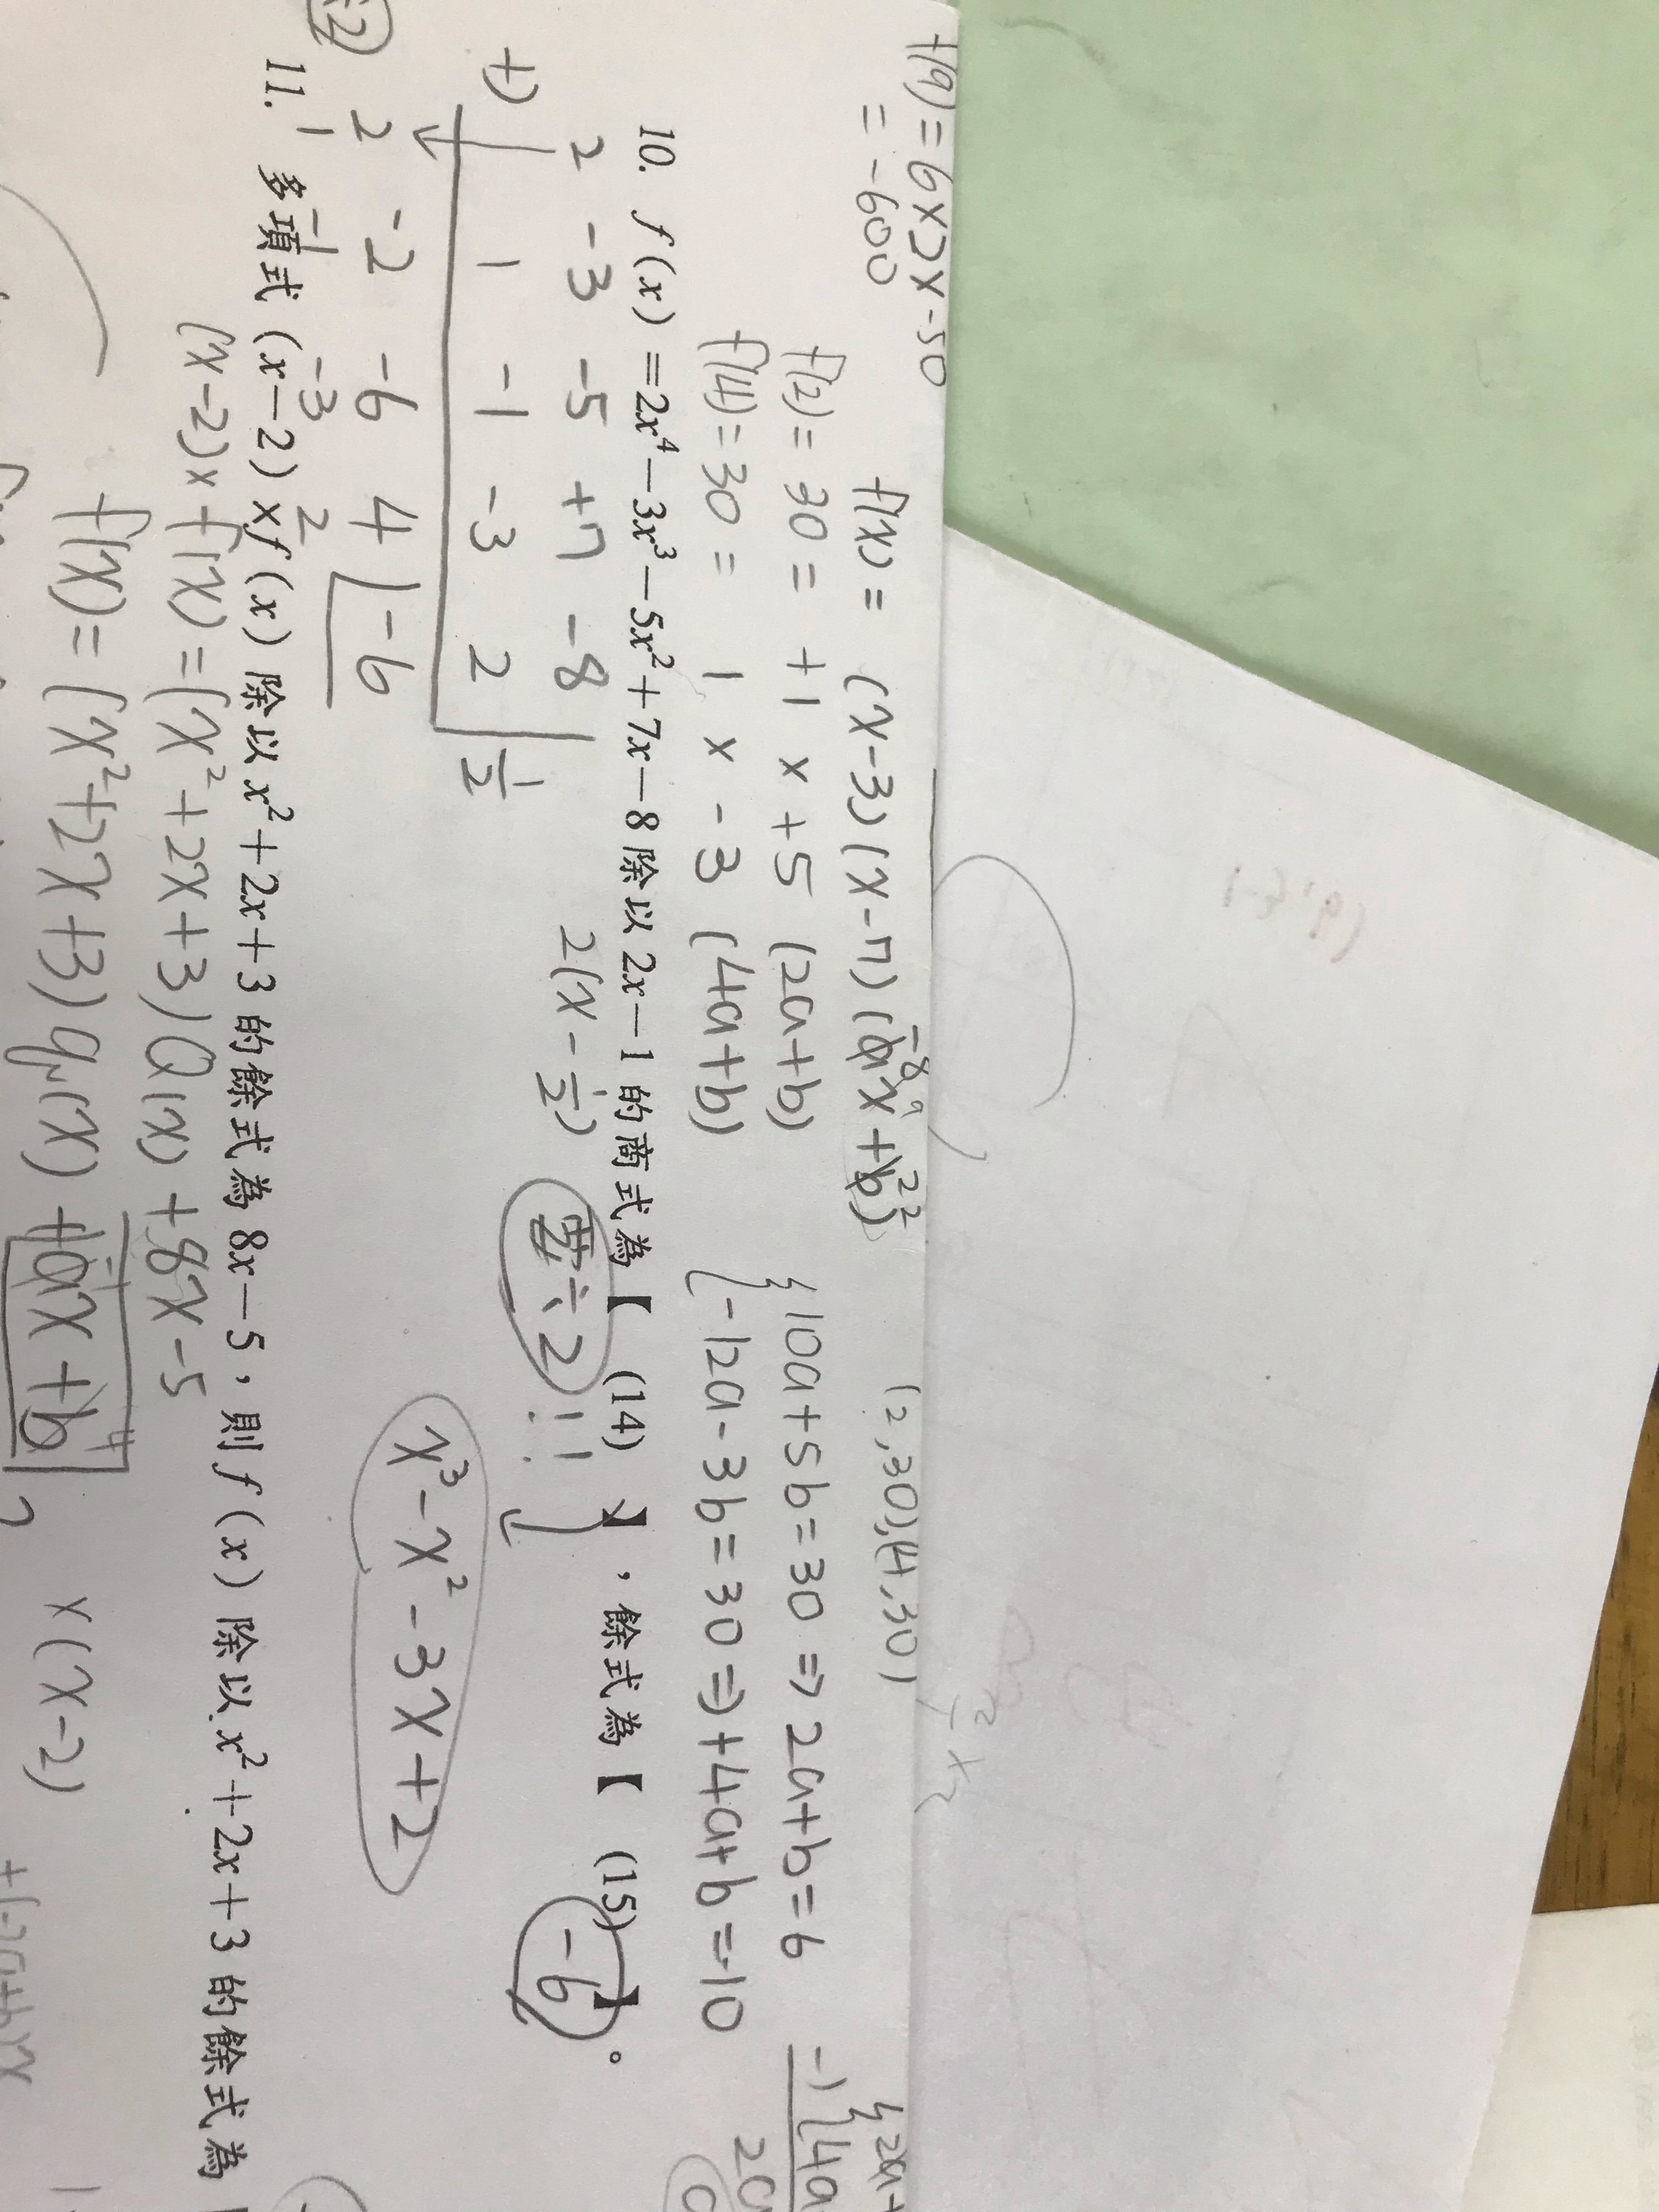 f(9) = 6×2×-50
= -600
f(x) = (x-3)(x-7)(ax+b)
-8 22
(2,30),(4,30)
f(2) = 30 = +1 × +5 (2a+b)
{10a+5b=30 ⇒ 2a+b=6
f(4) = 30 = 1 × -3 (4a+b)
-12a-3b=30 ⇒ +4a+b=-10
10. f(x)=2x⁴-3x³-5x²+7x-8除以2x-1的商式為【 (14) 】,餘式為【 (15) 】。
-6
2 -3 -5 +7 -8
2(x-1/2)
要÷2!!
+) 1 -1 -3 2 | 1/2
2 -2 -6 4 | -6
÷2
1 -1 -3 2
x³-x²-3x+2
11. 多項式(x-2)×f(x)除以x²+2x+3的餘式為8x-5,則f(x)除以x²+2x+3的餘式為
(x-2)×f(x) = (x²+2x+3)Q(x)+8x-5
f(x) = (x²+2x+3)q(x)+ax+b
×(x-2)